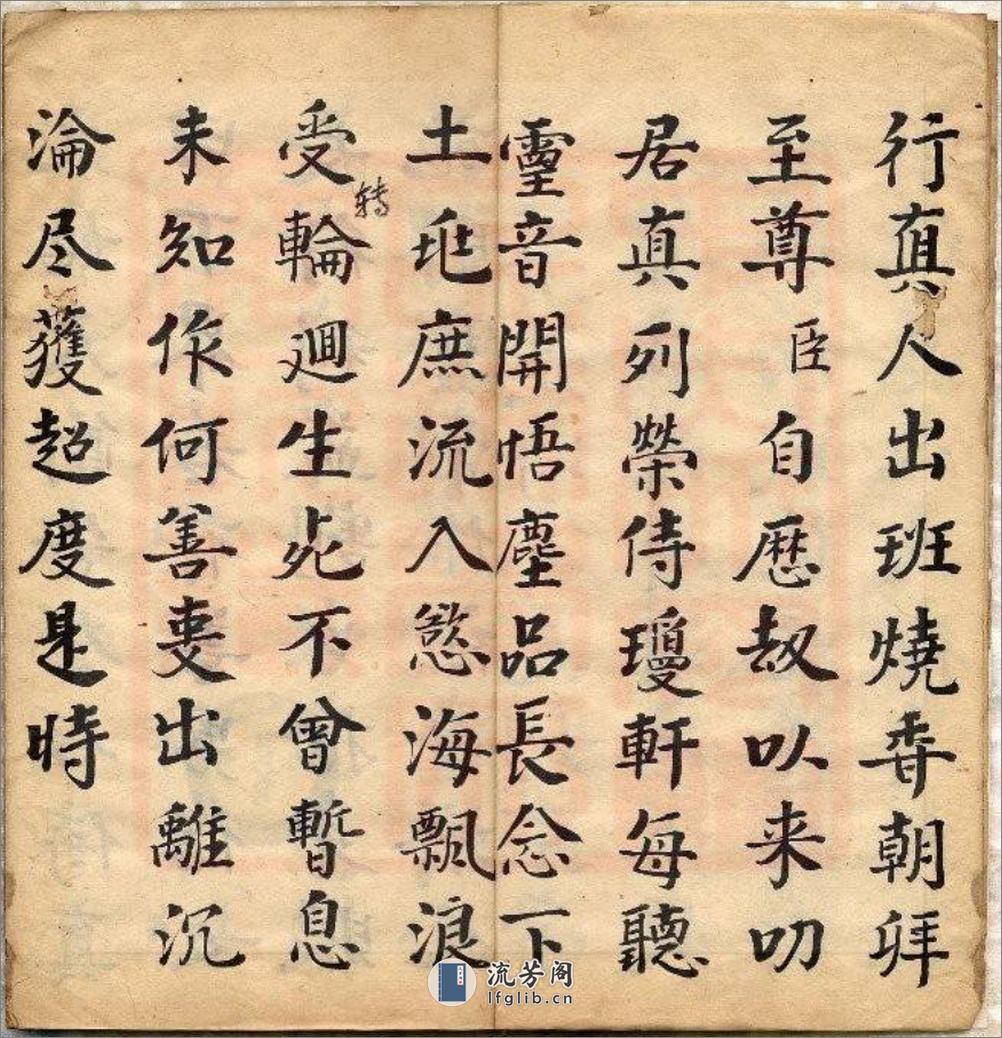 行真人出班燒香朝拜
至尊臣自歷劫以来叨
居真列榮侍瓊軒每聽
靈音開悟塵品長念下
土𠱾庶流入慾海飄浪
受轉輪迴生死不曾暫息
未知作何善𡚱出離沉
淪尽獲超度是時
流芳阁
lfglib.cn